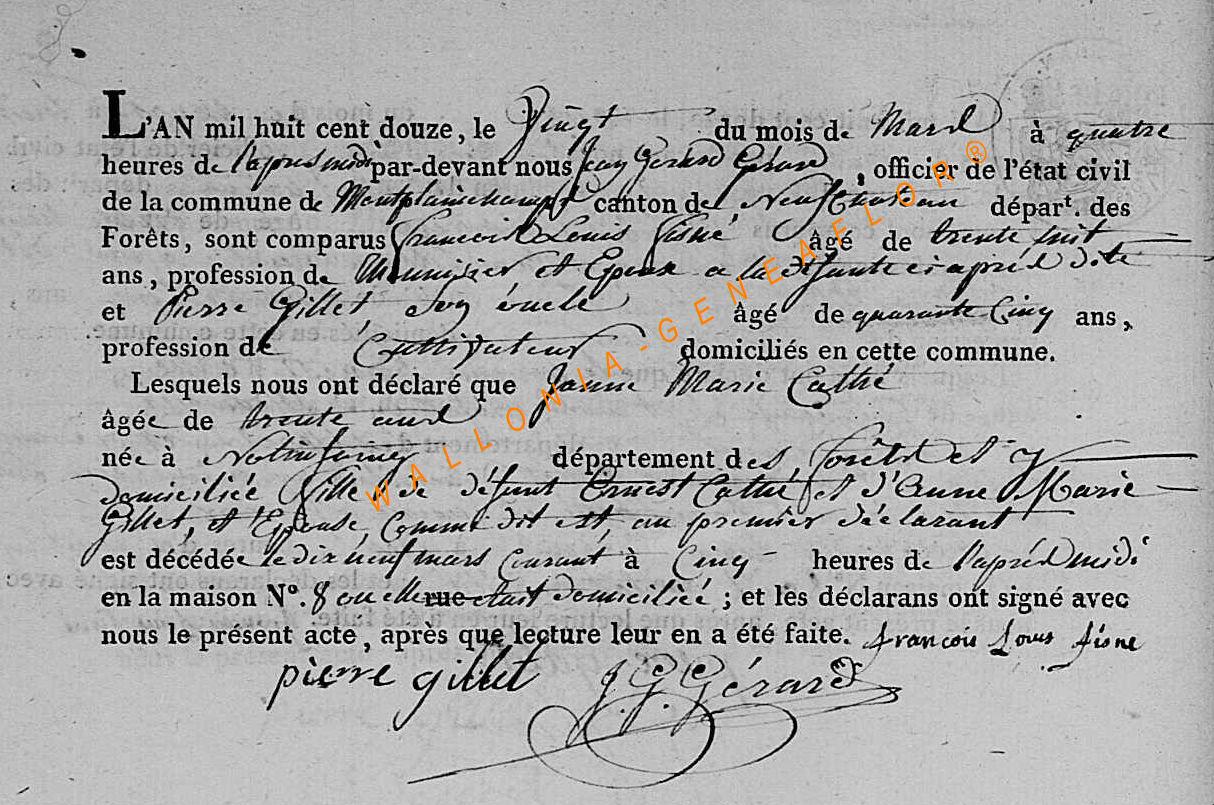 L'AN mil huit cent douze, le Vingt du mois de Mars à quatre
heures de l'apres midi par-devant nous Jean Gerard Gérard, officier de l'état civil
de la commune de Montplainchamps canton de Neufchateau départ. des
Forêts, sont comparus francois Louis fisné âgé de trente huit
ans, profession de Menuisier et Epoux a la défunte ci après dite
et Pierre Gillet Son âgé de quarante Cinq ans,
profession de Cultivateur domiciliés en cette commune.
Lesquels nous ont déclaré que Janne Marie Cathé
âgée de trente ans
née à département des forêts et y
domiciliée fille de défunt Ernest Cathé et d'Anne Marie
Gillet, et Epouse, Comme dit est au premier déclarant
est décédée le dix neuf mars Courant à Cinq heures de l'après midi
en la maison N°. 8 ou elle rue etait domiciliée ; et les déclarans ont signé avec
nous le présent acte, après que lecture leur en a été faite. françois Louis fisne
pierre gillet J. G. Gérard
WALLONIA-GENEAELOR®